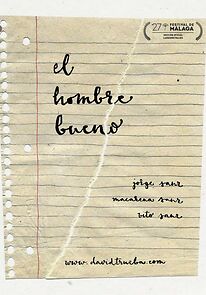 27
FESTIVAL DE
MÁLAGA
el
hombre
bueno
jorge sanz
macarena sanz
vito sanz
www.davidtrueba.com